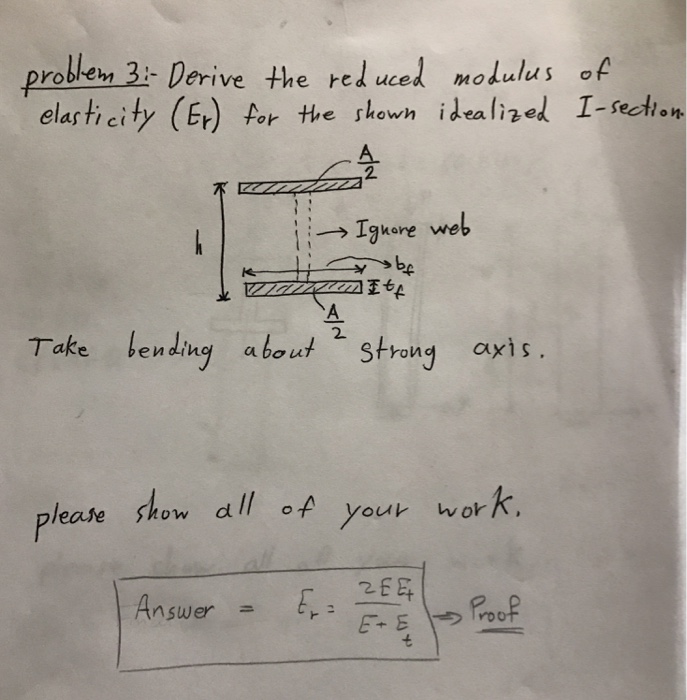 problem 3:- Derive the reduced modulus of
elasticity (Er) for the shown idealized I-section.
A/2
h
→ Ignore web
bf
tf
A/2
Take bending about strong axis.
please show all of your work.
Answer = Er = 2EEt / E+Et → Proof